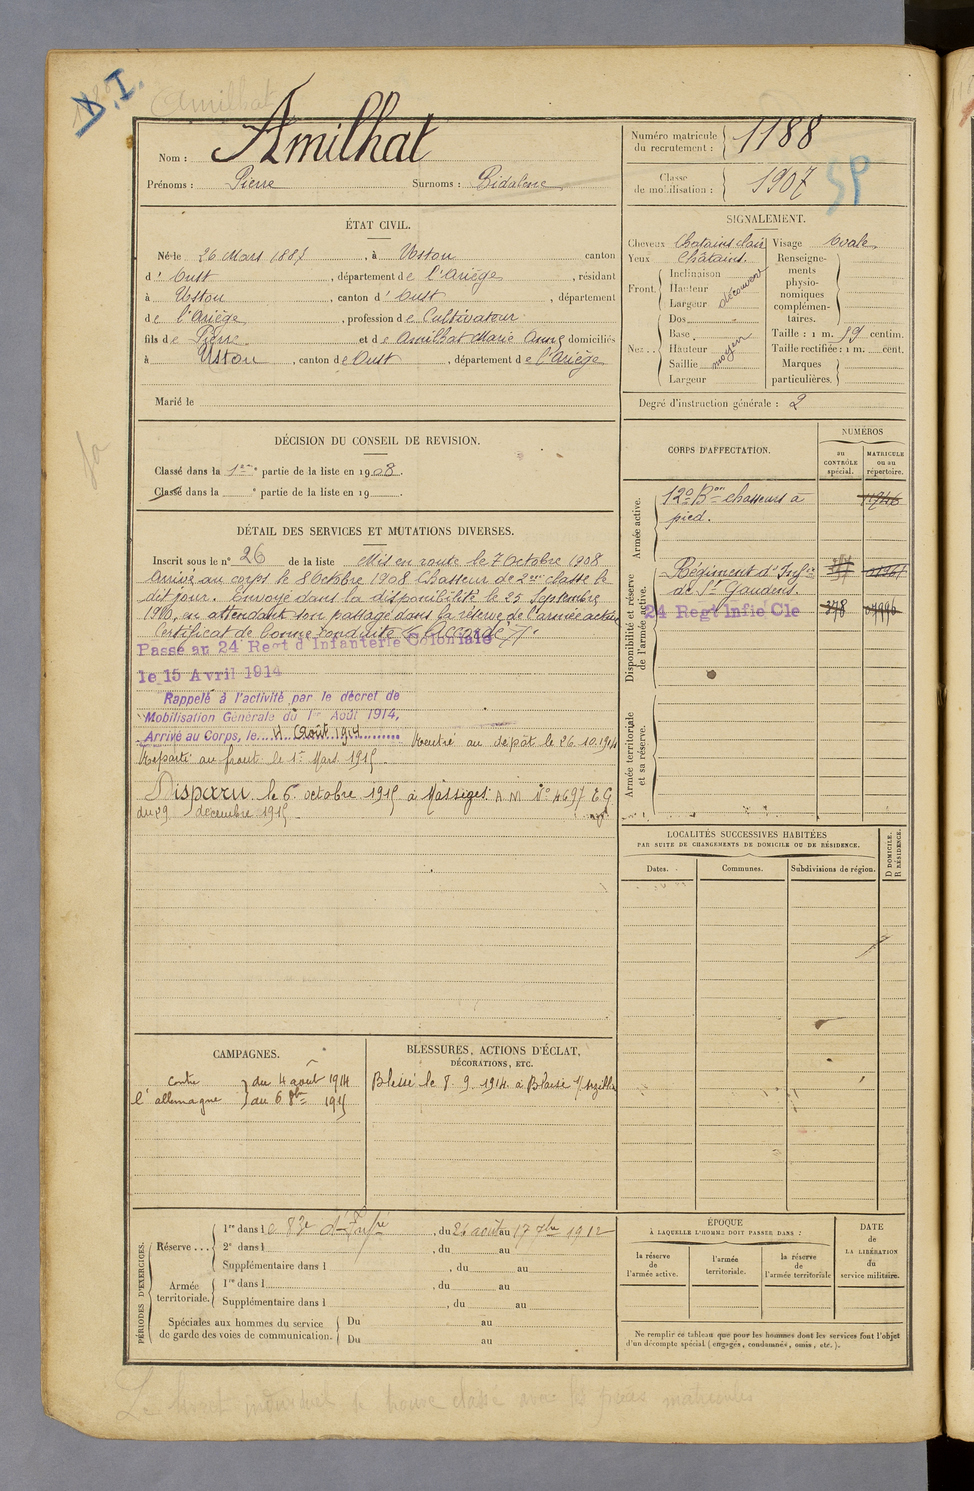 D.I.
Amilhat
Nom : Amilhat
Prénoms : Pierre Surnoms :
Numéro matricule du recrutement : 1188
Classe de mobilisation : 1907
SP
ÉTAT CIVIL.
Né le 26 Mars 1887, à Ustou canton
d' Oust, département de l'Ariège, résidant
à Ustou, canton d' Oust, département
de l'Ariège, profession de Cultivateur
fils de Pierre et de Amilhat Marie Anne domiciliés
à Ustou, canton de Oust, département de l'Ariège
Marié le
SIGNALEMENT.
Cheveux Chatains clair
Yeux Chatains.
Front. Inclinaison
Hauteur découvert
Largeur
Nez.. Dos "
Base
Hauteur moyen
Saillie
Largeur
Visage Ovale.
Renseigne-
ments
physio-
nomiques
complémen-
taires.
Taille : 1 m. 59 centim.
Taille rectifiée : 1 m. cent.
Marques
particulières.
Degré d'instruction générale : 2
DÉCISION DU CONSEIL DE REVISION.
Classé dans la 1ère partie de la liste en 1908.
Classé dans la e partie de la liste en 19
DÉTAIL DES SERVICES ET MUTATIONS DIVERSES.
Inscrit sous le n° 26 de la liste Mis en route le 7 Octobre 1908
Arrivé au corps le 8 Octobre 1908 Chasseur de 2eme classe le
dit jour. Envoyé dans la disponibilité le 25 Septembre
1910, en attendant son passage dans la réserve de l'armée active
Certificat de bonne conduite "Accordé".
Passé au 24 Regt d'Infanterie Coloniale
le 15 Avril 1914
Rappelé à l'activité par le décret de
Mobilisation Générale du 1er Août 1914,
Arrivé au Corps, le 4 Août 1914 Rentré au dépôt le 26.10.1914
Reparti au front le 1er Mars 1915.
Disparu le 6 octobre 1915 à Massiges. A M N° 4697 E G
du 29 décembre 1915
CORPS D'AFFECTATION.
NUMÉROS
au CONTRÔLE spécial.
MATRICULE ou au répertoire.
Armée active.
12e Bon chasseurs à
pied.
Disponibilité et réserve de l'armée active.
Régiment d'Infie
de St Gaudens.
24 Regt Infie Cle
Armée territoriale et sa réserve.
LOCALITÉS SUCCESSIVES HABITÉES
PAR SUITE DE CHANGEMENTS DE DOMICILE OU DE RÉSIDENCE.
Dates. Communes. Subdivisions de région.
D DOMICILE. R RÉSIDENCE.
CAMPAGNES.
contre } du 4 août 1914
l'allemagne } au 6 8bre 1915
BLESSURES, ACTIONS D'ÉCLAT,
DÉCORATIONS, ETC.
Blessé le 8. 9. 1914. à Blaise
PÉRIODES D'EXERCICES.
Réserve ...
1re dans le 83e d'Infie, du 26 août au 17 7bre 1912
2e dans l , du au
Supplémentaire dans l , du au
Armée territoriale.
1re dans l , du au
Supplémentaire dans l , du au
Spéciales aux hommes du service
de garde des voies de communication.
Du au
Du au
ÉPOQUE
À LAQUELLE L'HOMME DOIT PASSER DANS :
la réserve de l'armée active.
l'armée territoriale.
la réserve de l'armée territoriale
DATE
de
LA LIBÉRATION
du
service militaire.
Ne remplir ce tableau que pour les hommes dont les services font l'objet
d'un décompte spécial (engagés, condamnés, omis, etc.).
Le livret individuel se trouve classé avec les pièces matricules